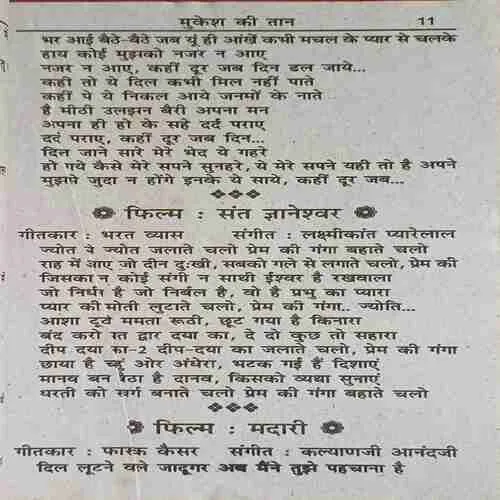 मुकेश की तान 11
भर आई बैठे-बैठे जब यूं ही आंखें कभी मचल के प्यार से चलके
हाय कोई मुझको नजर न आए
नजर न आए, कहीं दूर जब दिन ढल जाये...
कहीं तो ये दिल कभी मिल नहीं पाते
कहीं पे ये निकल आये जनमों के नाते
है मीठी उलझन बैरी अपना मन
अपना ही हो के सहे दर्द पराए
दर्द पराए, कहीं दूर जब दिन...
दिल जाने सारे मेरे भेद ये गहरे
हो गये कैसे मेरे सपने सुनहरे, ये मेरे सपने यही तो है अपने
मुझसे जुदा न होंगे इनके ये साये, कहीं दूर जब...
फिल्म : संत ज्ञानेश्वर
गीतकार : भरत व्यास संगीत : लक्ष्मीकांत प्यारेलाल
ज्योत रे ज्योत जलाते चलो प्रेम की गंगा बहाते चलो
राह में आए जो दीन दुःखी, सबको गले से लगाते चलो, प्रेम की
जिसका न कोई संगी न साथी ईश्वर है रखवाला
जो निर्धी है जो निर्बल है, वो है प्रभु का प्यारा
प्यार की मोती लुटाते चलो, प्रेम की गंगा.. ज्योति...
आशा टूटे ममता रूठी, छूट गया है किनारा
बंद करो रत द्वार दया का, दे दो कुछ तो सहारा
दीप दया का-2 दीप-दया का जलाते चलो, प्रेम की गंगा
छाया है चहू ओर अंधेरा, भटक गई हैं दिशाएं
मानव बन रठा है दानव, किसको व्यथा सुनाएं
धरती को स्वर्ग बनाते चलो प्रेम की गंगा बहाते चलो
फिल्म : मदारी
गीतकार : फारूक कैसर संगीत : कल्याणजी आनंदजी
दिल लूटने वले जादूगर अब मैंने तुझे पहचाना है